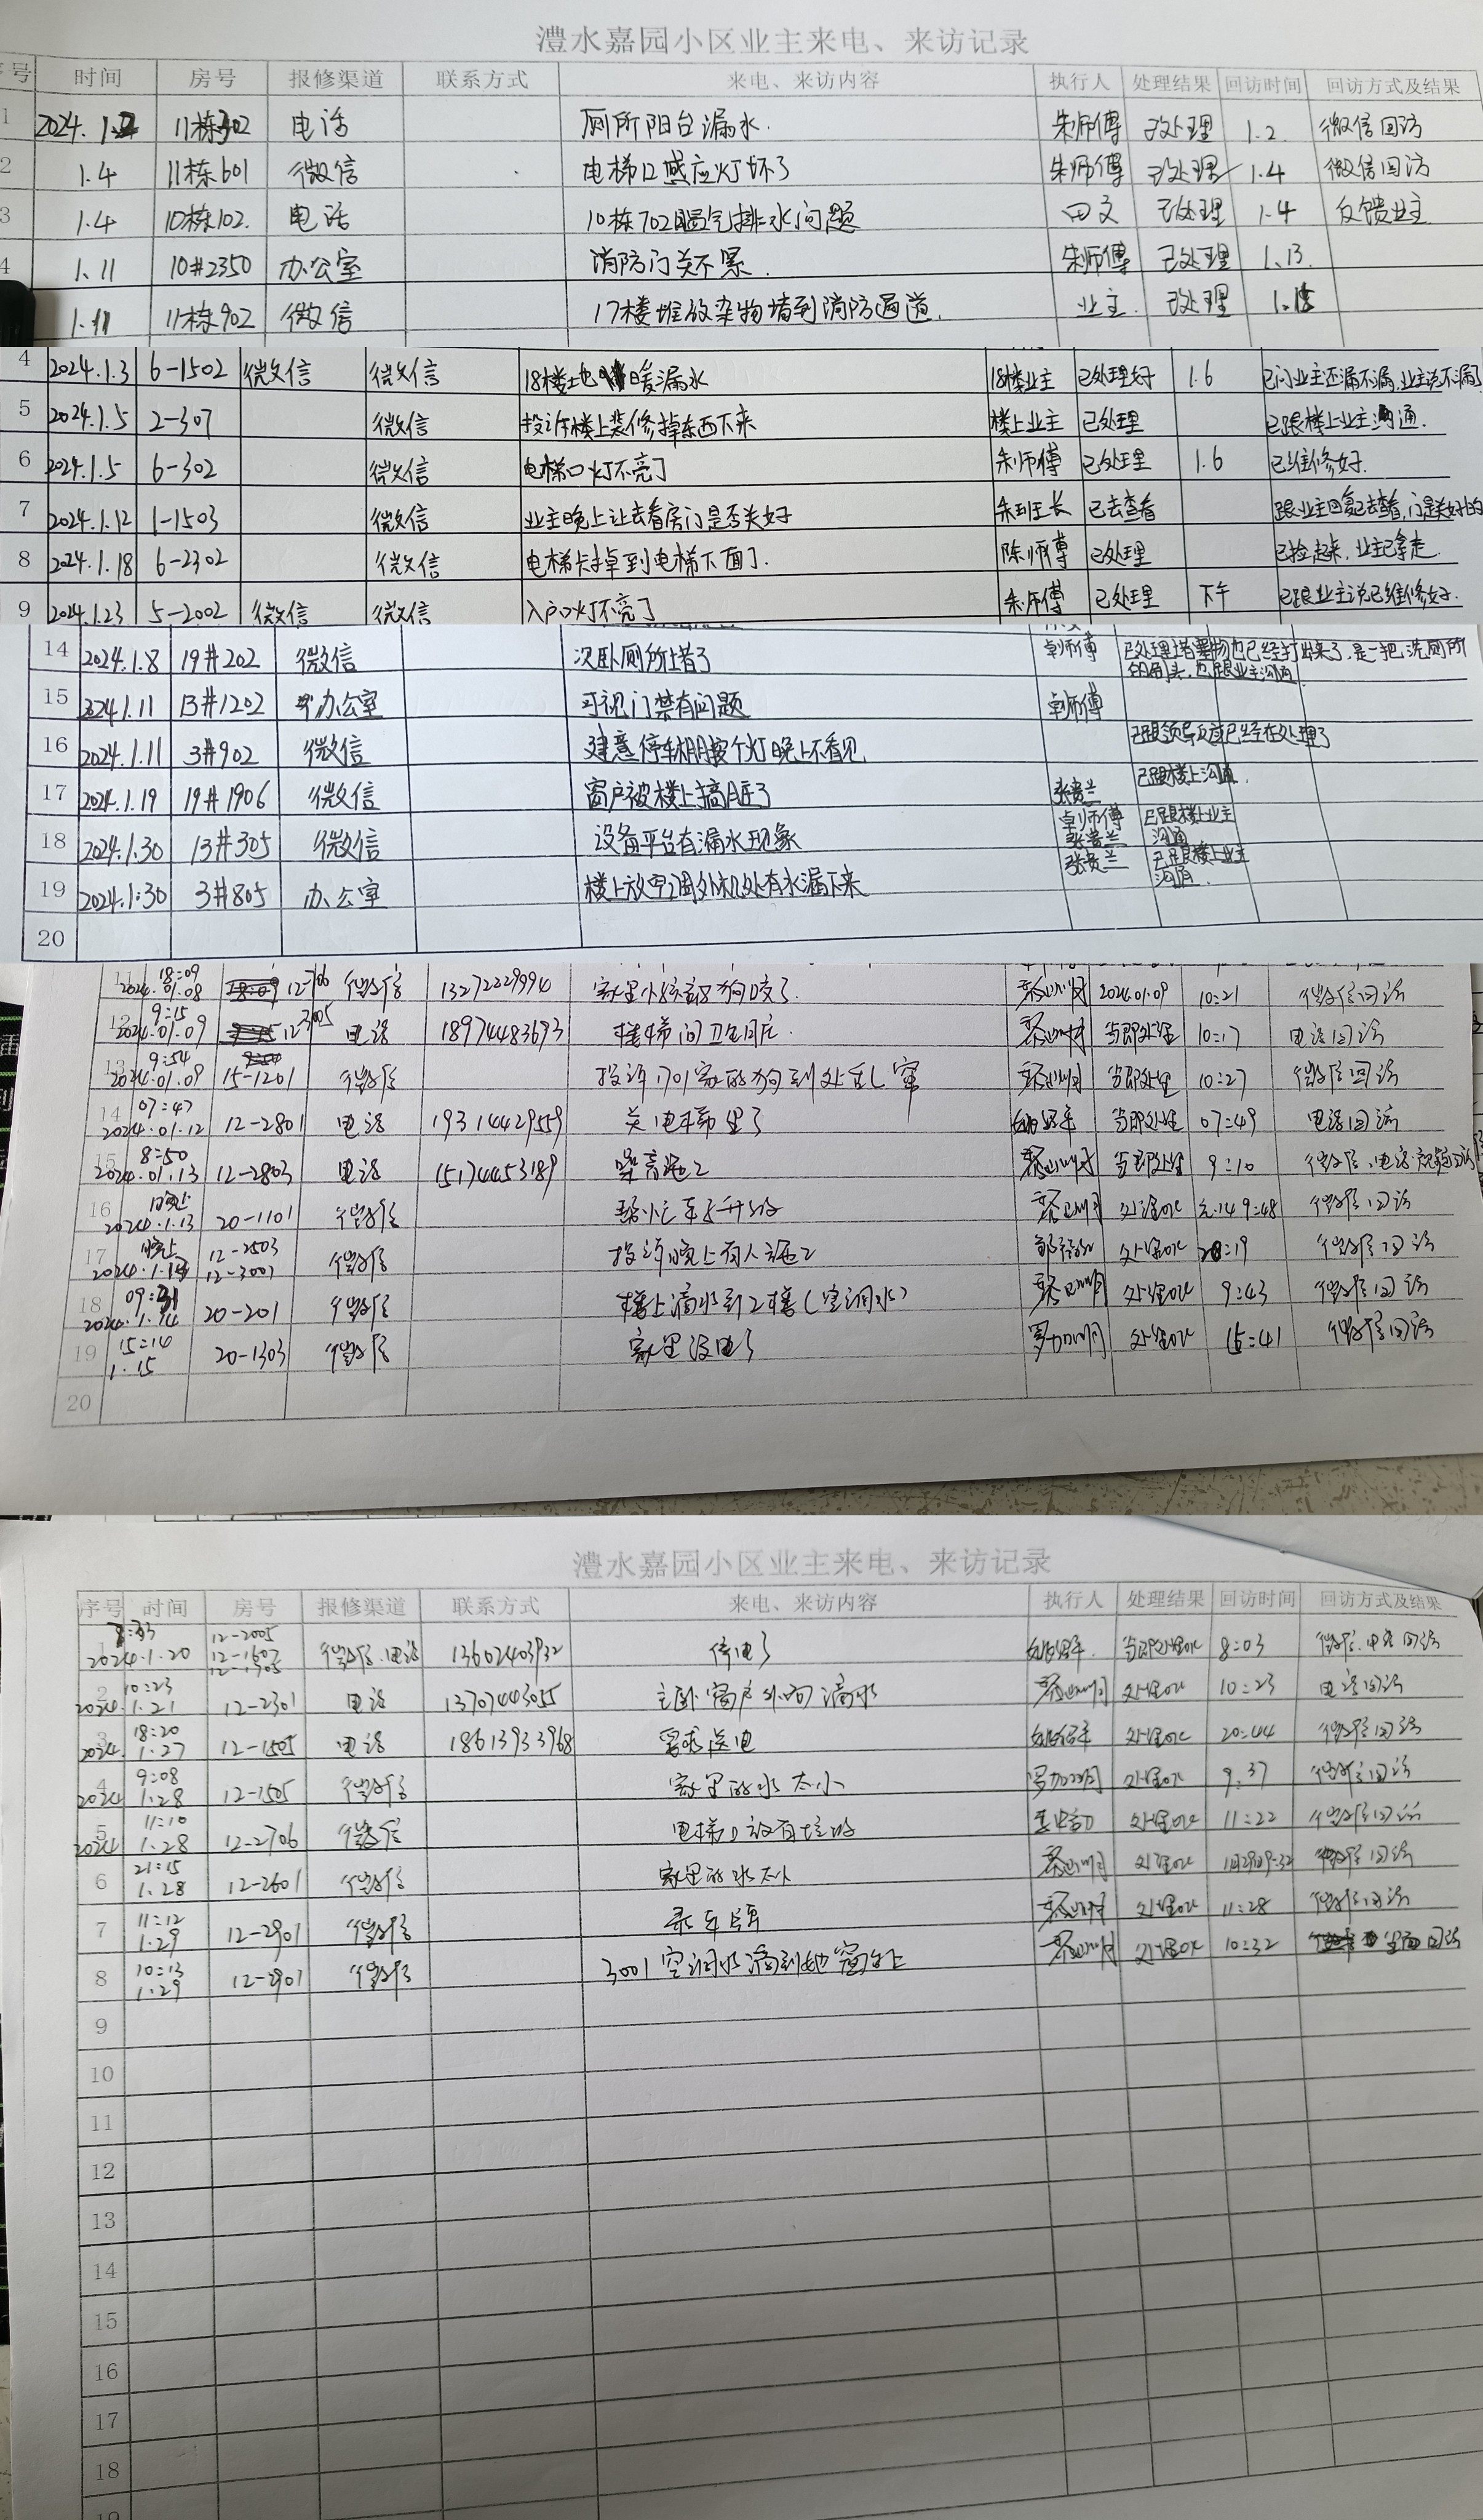 澧水嘉园小区业主来电、来访记录
序号 时间 房号 报修渠道 联系方式 来电、来访内容 执行人 处理结果 回访时间 回访方式及结果
1 2024.1.2 11栋302 电话 厕所阳台漏水. 朱师傅 已处理 1.2. 微信回访
2 1.4 11栋601 微信 电梯口感应灯坏了 朱师傅 已处理 1.4 微信回访
3 1.4 10栋102. 电话 10栋702暖气排水问题 田文 已处理 1.4 反馈业主
4 1.11 10#2350 办公室 消防门关不紧. 朱师傅 已处理 1.13.
1.11 11栋902 微信 17楼堆放杂物堵到消防通道. 业主. 已处理 1.15
4 2024.1.3 6-1502 微信 微信 18楼地暖漏水 18楼业主 已处理好 1.6 已问业主还漏不漏,业主说不漏了
5 2024.1.5 2-307 微信 投诉楼上装修掉东西下来 楼上业主 已处理 已跟楼上业主沟通.
6 2024.1.5 6-302 微信 电梯口灯不亮了 朱师傅 已处理 1.6 已维修好.
7 2024.1.12 1-1503 微信 业主晚上让去看房门是否关好 朱班长 已去查看 跟业主回复已去查看,门是关好的
8 2024.1.18 6-2302 微信 电梯卡掉到电梯下面了. 陈师傅 已处理 已捡起来,业主已拿走.
9 2024.1.23 5-2002 微信 微信 入户口灯不亮了 朱师傅 已处理 下午 已跟业主说已维修好.
14 2024.1.8 19#202 微信 次卧厕所堵了 卓师傅 已处理堵塞物也已经打出来了,是一把洗厕所
的刷头,也跟业主沟通
15 2024.1.11 13#1202 办公室 可视门禁有问题 卓师傅
16 2024.1.11 3#902 微信 建意停车棚按个灯晚上不看见 已跟领导反应已经在处理了
17 2024.1.19 19#1906 微信 窗户被楼上搞脏了 张贵兰 已跟楼上沟通.
18 2024.1.30 13#305 微信 设备平台有漏水现象 卓师傅 张贵兰 已跟楼上业主沟通
19 2024.1.30 3#805 办公室 楼上放空调外机处有水漏下来 张贵兰 已跟楼上业主沟通.
20
11 18:09 2024.01.08 12-706 微信 13272229990 家里小孩被狗咬了. 2024.01.09 10:21 微信回访
12 9:15 2024.01.09 12-3005 电话 18974483693 楼梯间卫生间 当即处理 10:17 电话回访
13 9:54 2024.01.09 15-1201 微信 投诉1701家的狗到处乱窜 当即处理 10:27 微信回访
14 07:47 2024.01.12 12-2801 电话 19314429559 关电梯里了 当即处理 07:49 电话回访
15 8:50 2024.01.13 12-2803 电话 15174453189 噪音施工 当即处理 9:10 微信、电话
16 晚上 2024.1.13 20-1101 微信 处理OK 1.14 9:48 微信回访
17 晚上 2024.1.13 12-2503 12-3001 微信 投诉晚上有人施工 处理OK 20:19 微信回访
18 09:31 2024.1.14 20-201 微信 楼上滴水到2楼(空调水) 处理OK 9:43 微信回访
19 15:14 1.15 20-1303 微信 家里没电了 处理OK 15:41 微信回访
20
澧水嘉园小区业主来电、来访记录
序号 时间 房号 报修渠道 联系方式 来电、来访内容 执行人 处理结果 回访时间 回访方式及结果
1 2024.1.20 12-2005 12-1607 12-1305 微信.电话 13602403932 停电了 当即处理OK 8:03 微信.电话回访
2 10:23 2024.1.21 12-2301 电话 13707443055 主卧窗户外面滴水 处理OK 10:23 电话回访
3 18:20 2024.1.27 12-1505 电话 18613933968 要求送电 处理OK 20:44 微信回访
4 9:08 2024 1.28 12-1505 微信 家里的水太小 处理OK 9:37 微信回访
5 11:10 2024 1.28 12-2706 微信 电梯口放有垃圾 处理OK 11:22 微信回访
6 21:15 1.28 12-2601 微信 家里的水太小 处理OK 1月29日9:32 微信回访
7 11:12 1.29 12-2901 微信 录车牌 处理OK 11:28 微信回访
8 10:13 1.29 12-2901 微信 3001空调水滴到她窗台上 处理OK 10:32 当面回访
9
10
11
12
13
14
15
16
17
18
19